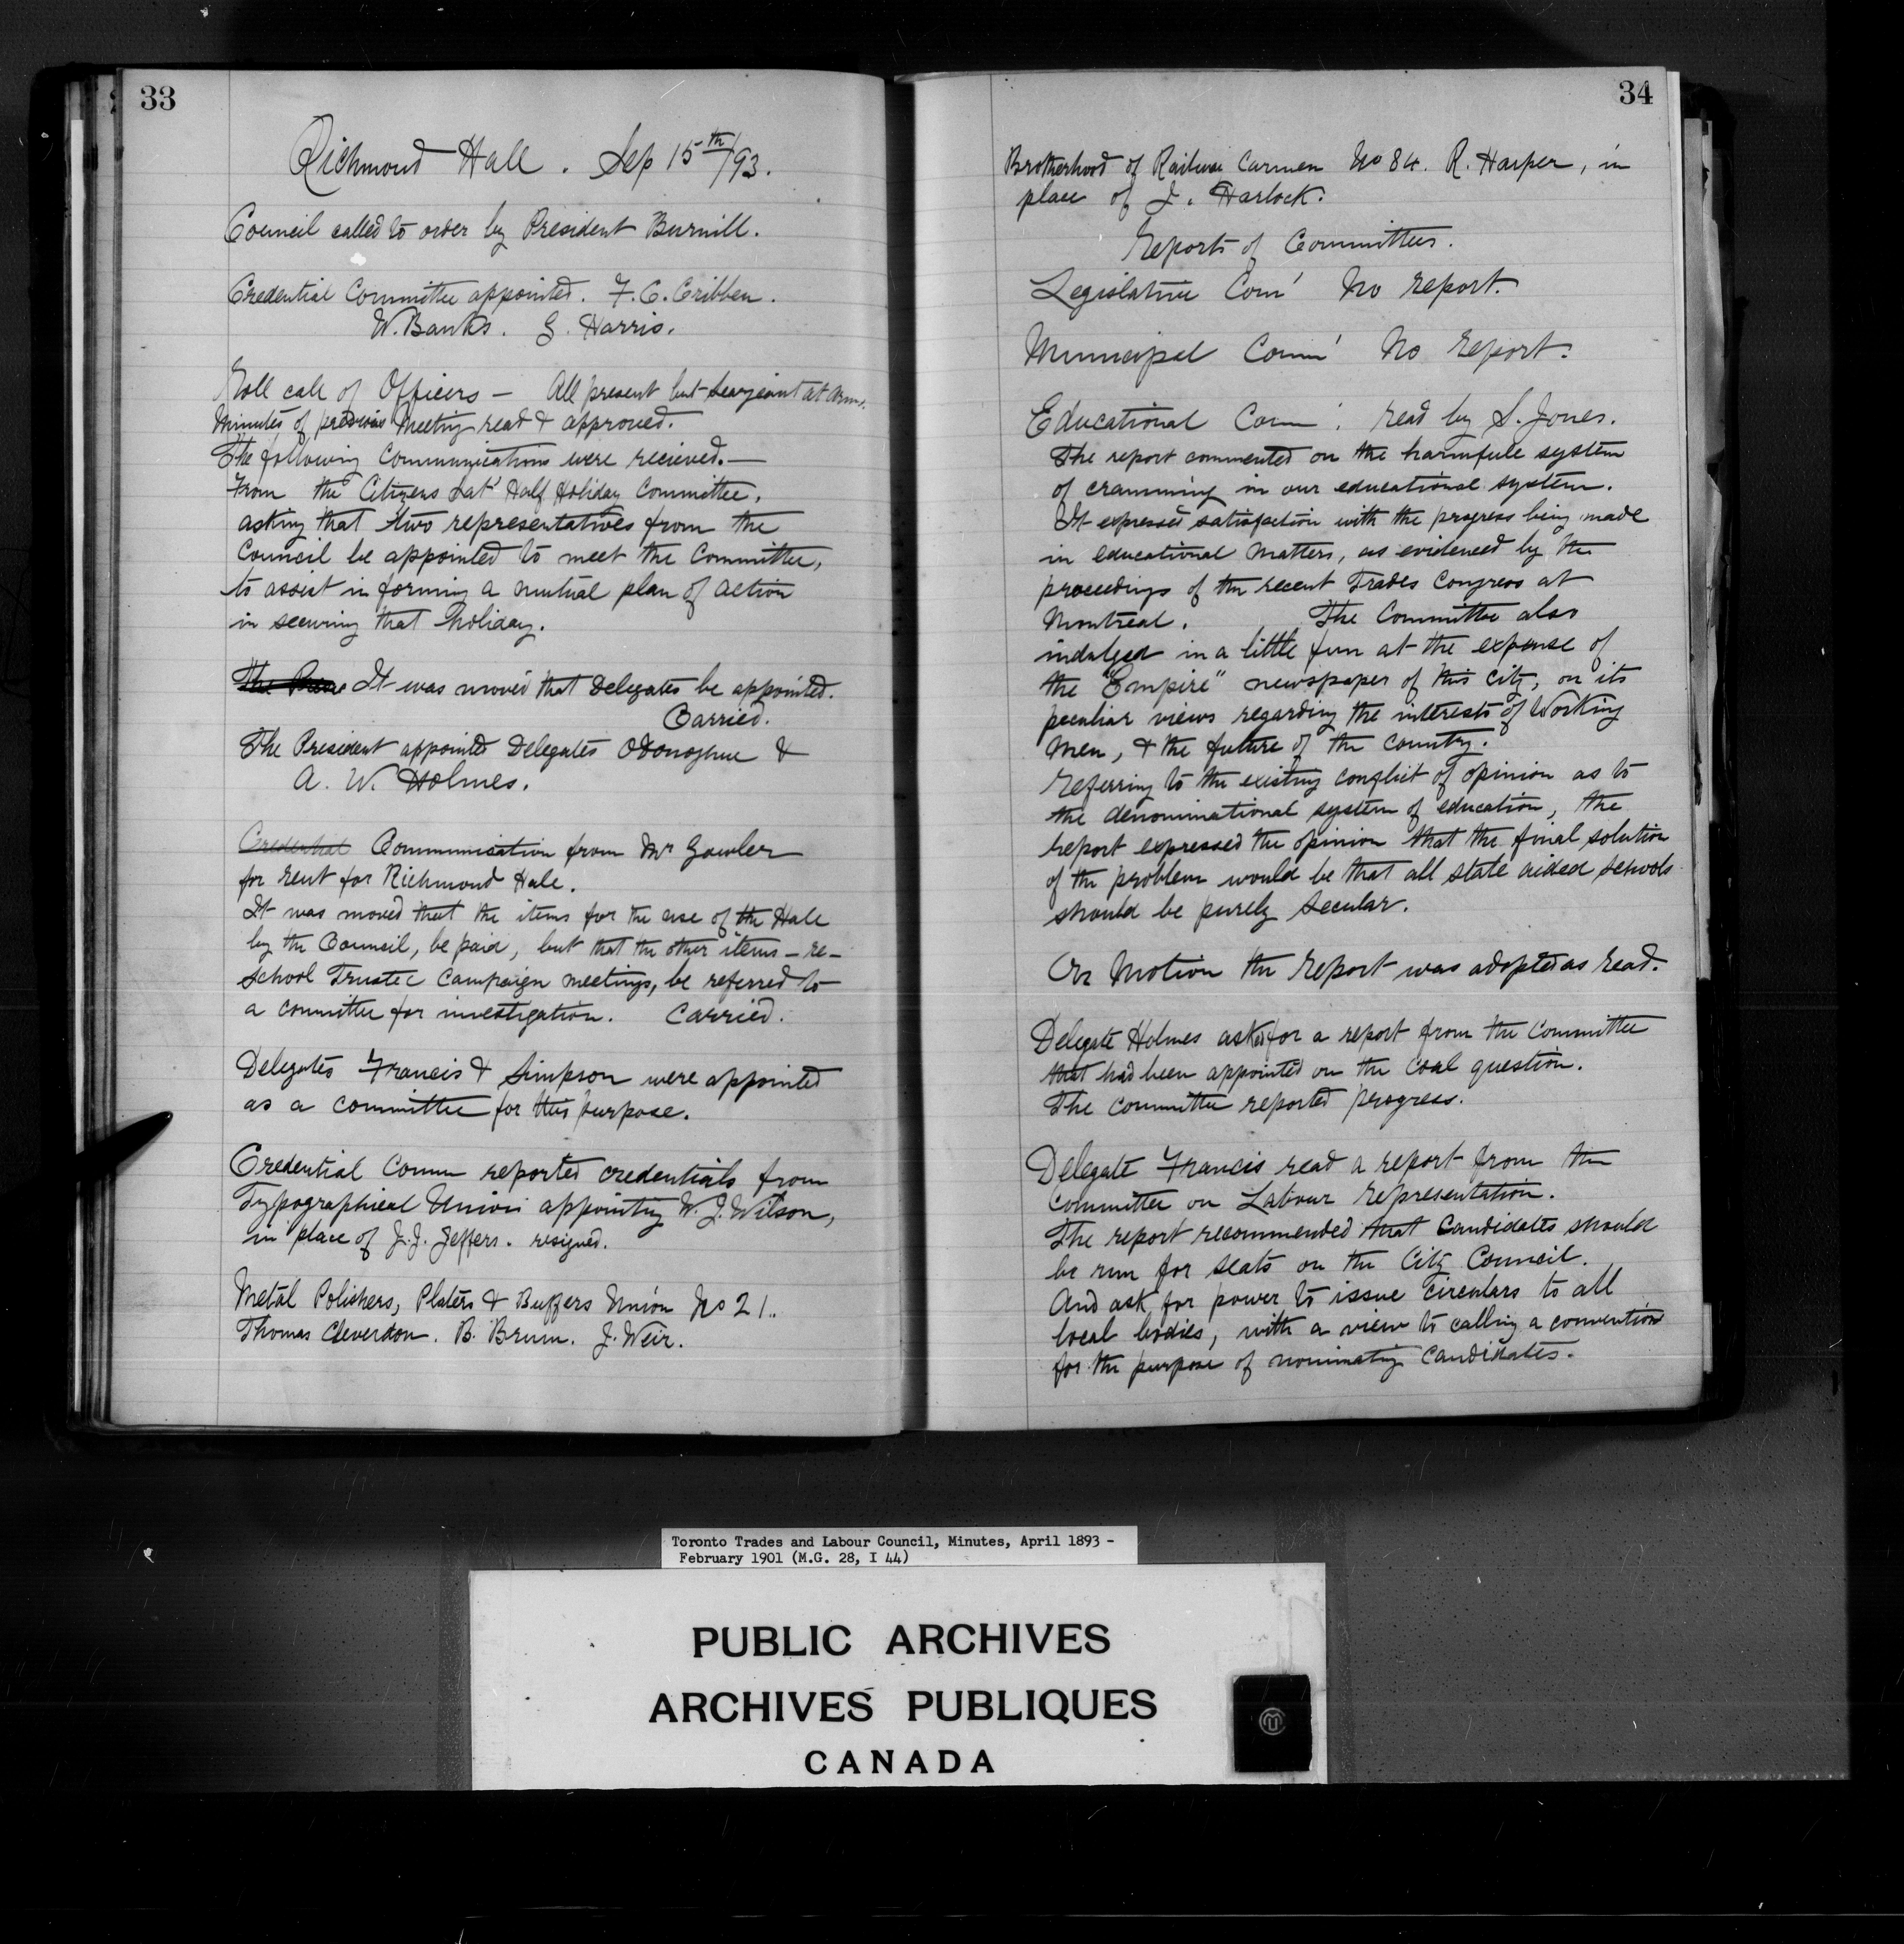 33
Richmond Hall. Sep 15th/93.
Council called to order by President Burnill.
Credential Committee appointed. F. C. Cribben.
W. Banks. G. Harris.
Roll call of Officers – All present but Searjeant at Arms.
Minutes of previous Meeting read & approved.
The following Communications were recieved.—
From the Citizens Sat' Half Holiday Committee,
asking that two representatives from the
Council be appointed to meet the Committee,
to assist in forming a mutual plan of action
in securing that holiday.
The It was moved that Delegates be appointed.
Carried.
The President appointed Delegates ODonoghue &
A. W. Holmes.
Credential Communication from Mr Gowler
for rent for Richmond Hall.
It was moved that the items for the use of the Hall
by the Council, be paid, but that the other items – re –
School Trustee Campaign meetings, be referred to
a committee for investigation. Carried.
Delegates Francis & Simpson were appointed
as a committee for this purpose.
Credential Comm reported credentials from
Typographical Union appointing W. J. Wilson,
in place of J. J. Jeffers. resigned.
Metal Polishers, Platers & Buffers Union No 21..
Thomas Cleverdon. B. Brum. J. Weir.
34
Brotherhood of Railway Carmen No 84. R. Harper, in
place of J. Harlock.
Reports of Committees.
Legislative Com' No report.
Municipal Comm' No report.
Educational Comm'. read by S. Jones.
The report commented on the harmfull system
of cramming in our educational system.
It expressed satisfaction with the progress being made
in educational matters, as evidenced by the
proceedings of the recent Trades Congress at
Montreal. The Committee also
indulged in a little fun at the expense of
the "Empire" newspaper of this city, on its
peculiar views regarding the interests of Working
Men, & the future of the country.
Referring to the existing conflict of opinion as to
the denominational system of education, the
report expressed the opinion that the final solution
of the problem would be that all state aided schools
should be purely secular.
On Motion the report was adopted as read.
Delegate Holmes asked for a report from the Committee
that had been appointed on the coal question.
The committee reported progress.
Delegate Francis read a report from the
Committee on Labour Representation.
The report recommended that Candidates should
be run for seats on the City Council.
And ask for power to issue circulars to all
local bodies, with a view to calling a convention
for the purpose of nominating Candidates.
Toronto Trades and Labour Council, Minutes, April 1893 -
February 1901 (M.G. 28, I 44)
PUBLIC ARCHIVES
ARCHIVES PUBLIQUES
CANADA